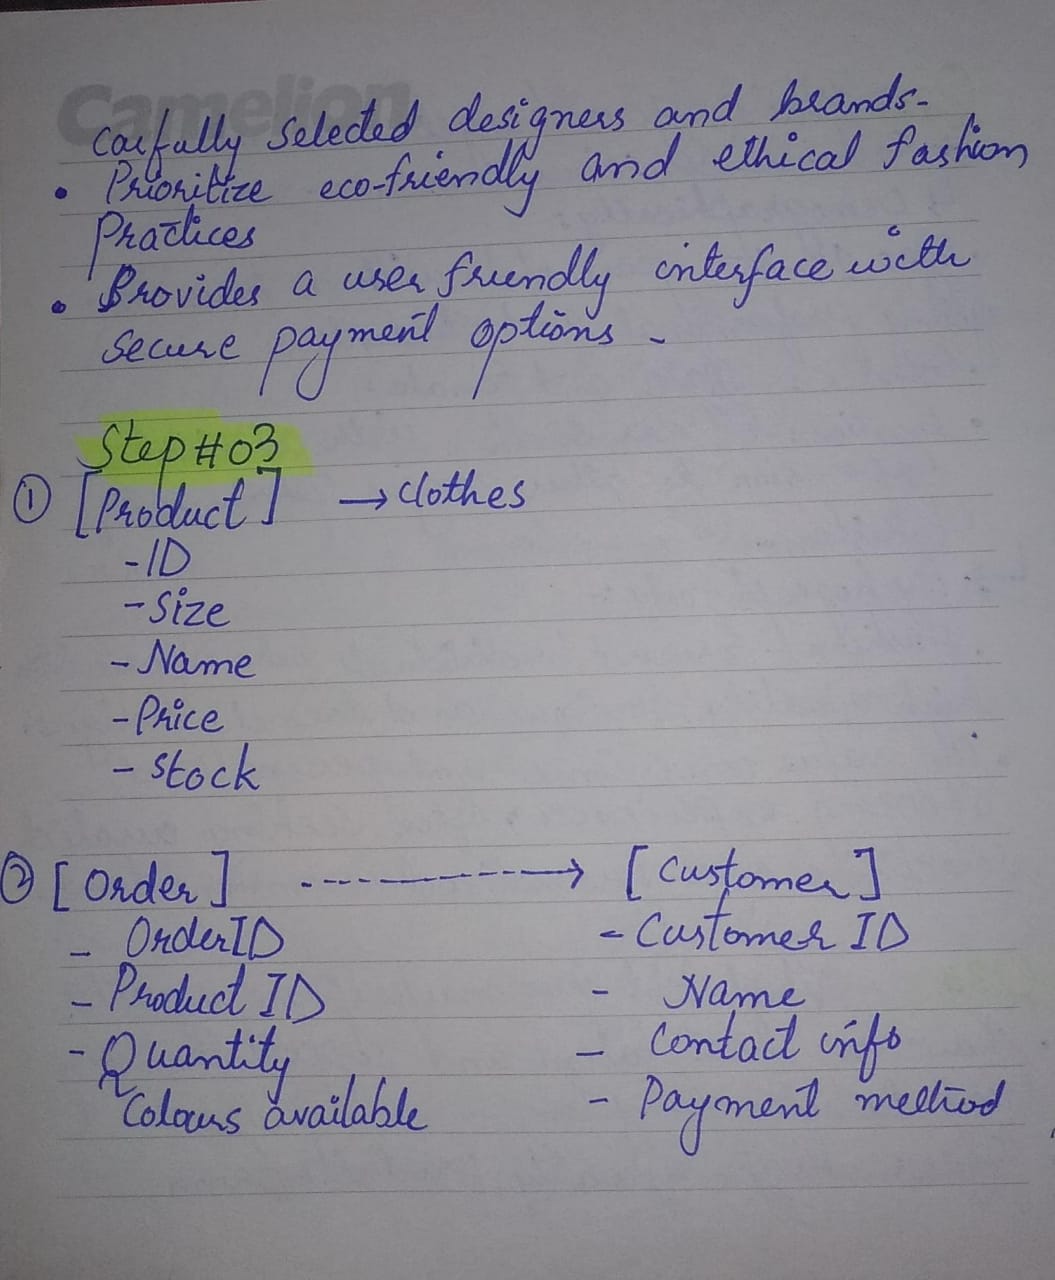 Camelion
Caefully Selected designers and brands-
• Prioritize eco-friendly and ethical fashion
Practices
• Provides a user friendly interface with
Secure payment options -
Step #03
① [Product] → Clothes
- ID
- Size
- Name
- Price
- Stock
② [Order] -------→ [Customer]
- OrderID - Customer ID
- Product ID - Name
- Quantity - Contact info
Colours available - Payment method